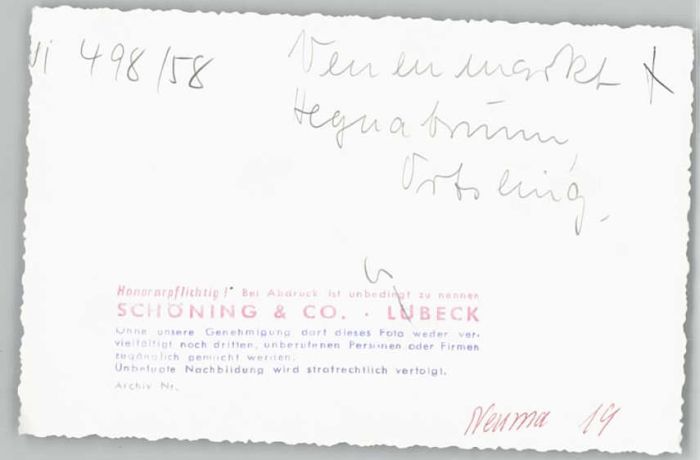 Ni 498/58
Neuenmarkt X
Hegnabrunn,
Ortseing.
Honorarpflichtig! Bei Abdruck ist unbedingt zu nennen
SCHÖNING & CO. · LÜBECK
Ohne unsere Genehmigung darf dieses Foto weder ver-
vielfältigt noch dritten, unberufenen Personen oder Firmen
zugänglich gemacht werden.
Unbefugte Nachbildung wird strafrechtlich verfolgt.
Archiv-Nr.
Neuma 19